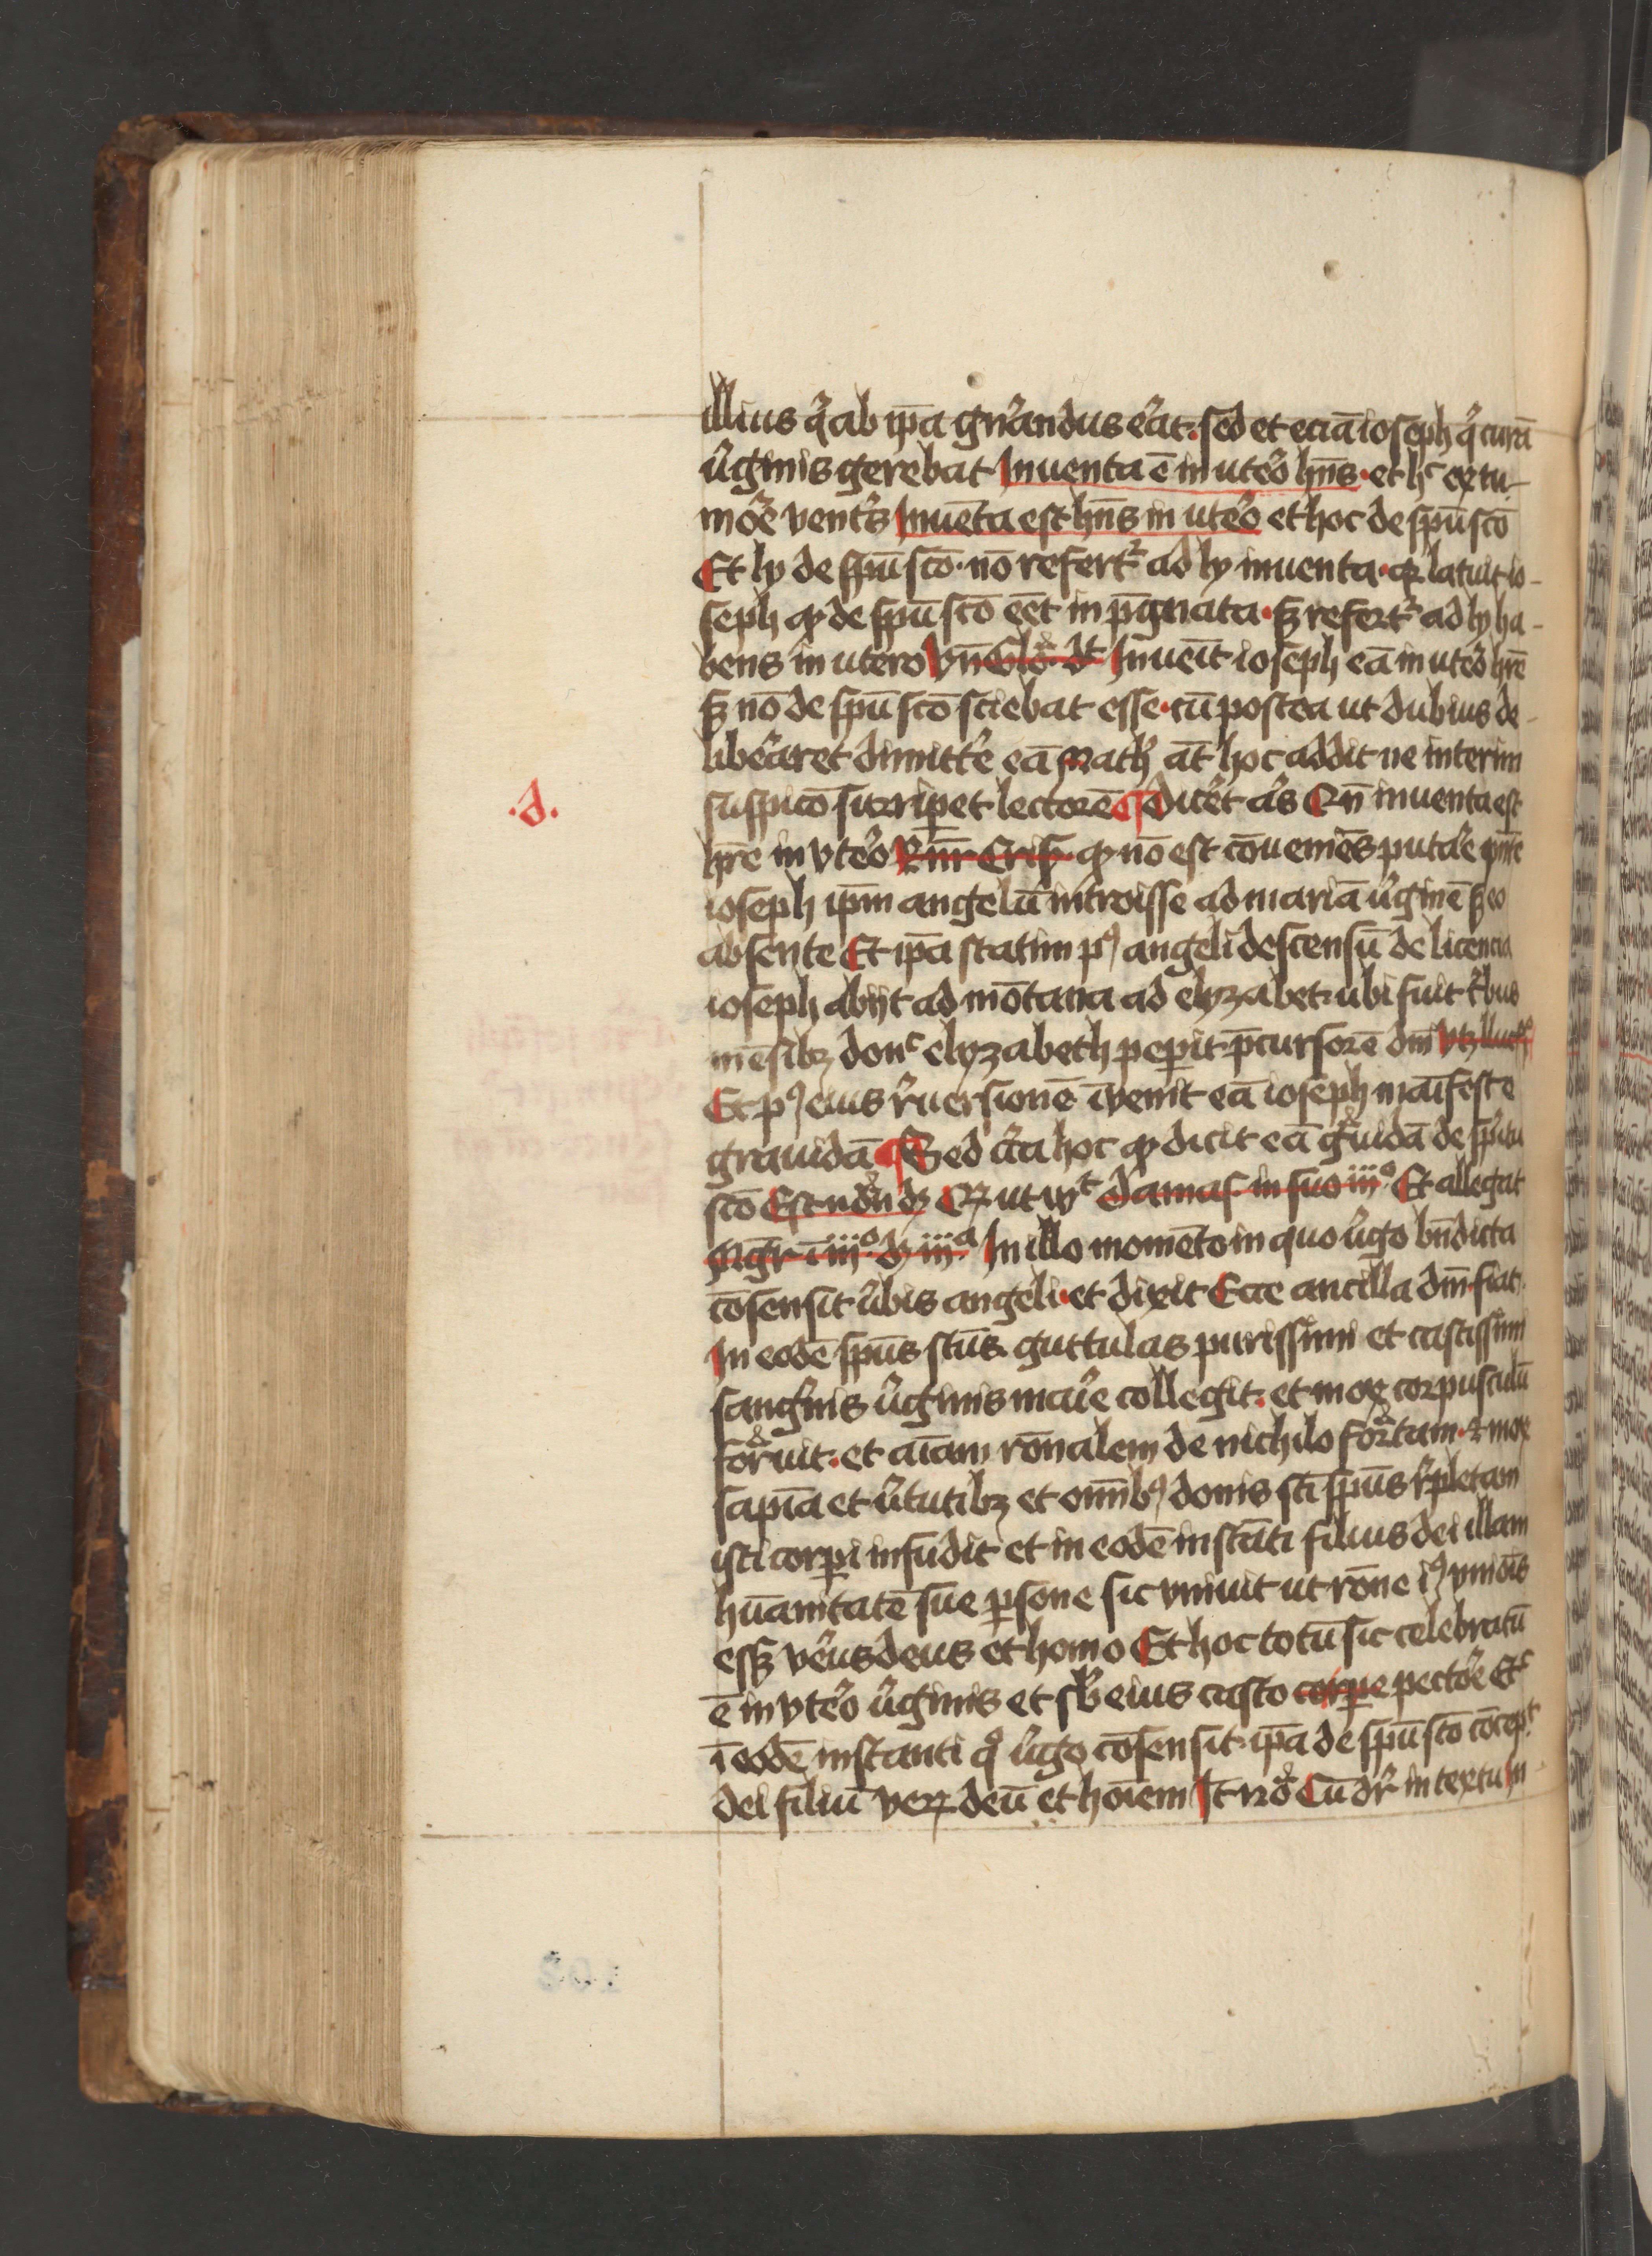 illius q̇ ab ip̄a gn̄andus ėat. sed et eciā ioseph q̇ curā
v̇ginis gerebat Inuenta ē in utėo hn̄s. et hᶜ ex tu-
moṙe vent̾s Inuēta est hn̄s in utėo et hoc de spū scō
Et ly de spū scō. nō refert᷑ ad ly inuenta. qꝛ latuit io-
seph ꝙ de spū scō eēt inp̄gnata. sꝫ refert᷑ ad ly ha-
bens in utero Vn̄ Glo dt Inueīt ioseph eā in utėo hr̄e
sꝫ nō de spū scō sciebat esse. cū postea ut dubius de-
libėaret dimitt̾e eā Math̾ āt hoc addit ne interim
suspico surripet lectorē ¶ dicėt al̾s Qn̄ inuenta est
.d.
hr̄e in vtėo Rn̄ Cris ꝙ nō est cōueniēs putar̾e pn̄te
ioseph ip̄m angelū introisse ad mariā v̇ginē sꝫ eo
absente Et ip̄a statim pꝰ angeli descensū de licencia
ioseph abijt ad mōtana ad elyzabet. ubi fuit t̾bus
mēsibꝫ donᶜ elyzabeth peꝑit p̄cursorē dn̄i vtꝫ luc
Et pꝰ eius r̾uersionē īvenit eā ioseph māifeste
grauidā ¶ Sed c̾ca hoc ꝙ dicit eā gͣuidā de sp̄itu
scō Est ndū ꝙ Qꝛ ut ptᶜ damas in suo iijº. Et allegat
Mgr̄ ī iijº. d iijª. In illo momēto in quo v̇go bn̄dicta
cōsensit v̇bis angeli. et dixit Ecce ancilla dn̄i. fiat.
In eodē spūs scūs guttulas purissimi et castissimi
sangͥnis v̇ginis maͥe collegit. et mox corpusculū
forͣuit. et aīam rōnalem de nichilo forͣtam. ⁊ mox
sapīa et v̇tutibꝫ et om̄ibꝰ donis sc̄i spūs r̾pletam
isti corꝑi infudit et in eodē instāti filius dei illam
hūanitatē sue ꝑsone sic vniuit ut rōne iꝰ vniōis
essꝫ vėus deus et homo Et hoc totū sic celebratū
ē in vtėo v̇ginis et sb̾ eius casto corꝑe pectoṙe Etᶜ
ī eodē instanti qͦ v̇go cōsensit. ip̄a de spū scō cōcepᵗ
dei filiū veꝝ deū et hoīem It̄ ndo Cū dr̄ in textu In